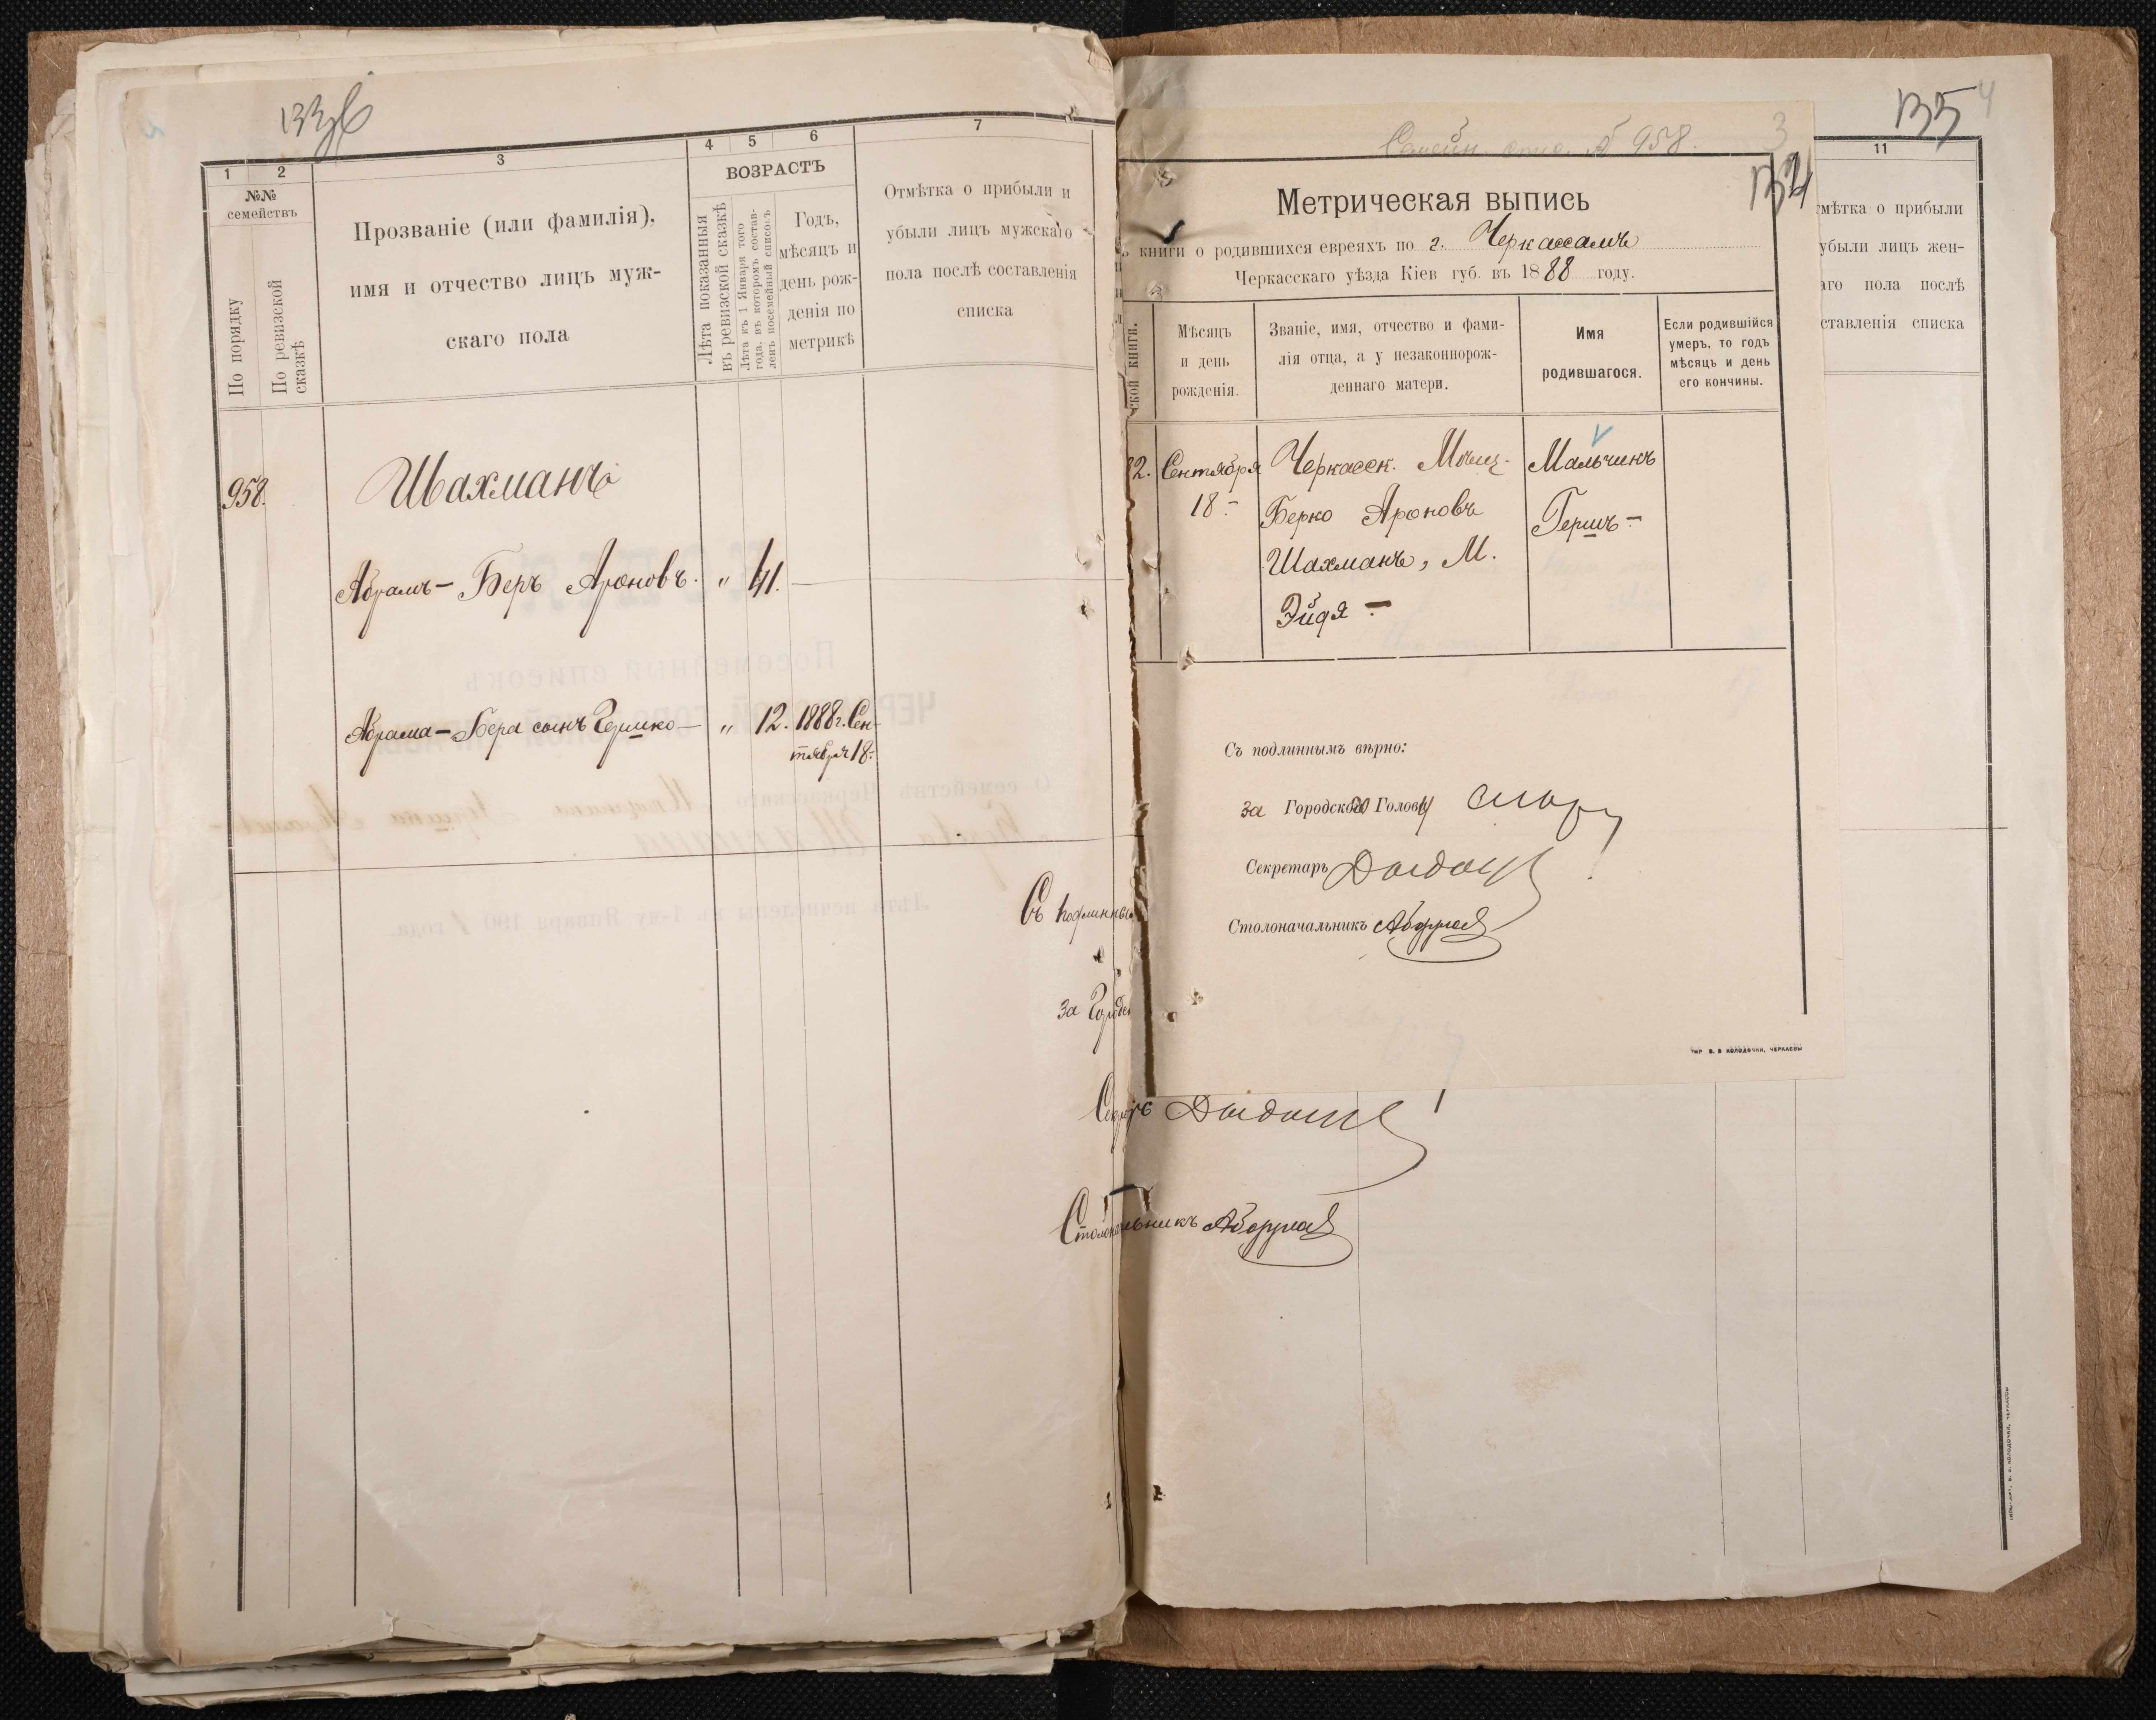 1 2 3 4 5 6 7
№№ семействъ
По порядку
По ревизской сказкѣ
Прозваніе (или фамилія),
имя и отчество лицъ муж-
скаго пола
ВОЗРАСТЪ
Лѣта показанныя въ ревизской сказкѣ
Лѣта къ 1 Января того года, въ которомъ состав-ленъ посемейный списокъ
Годъ,
мѣсяцъ и
день рож-
денія по
метрикѣ
Отмѣтка о прибыли и
убыли лицъ мужскаго
пола послѣ составленія
списка
958. Шахманъ
Абрамъ-Беръ Ароновъ. " 41.
Абрама-Бера сынъ Гершко- " 12. 1888 г. Сен-
тября 18.
Съ подлинны
за Город
Столоначальникъ
135 4
11
мѣтка о прибыли
убыли лицъ жен-
аго пола послѣ
ставленія списка
958. 3
134
Метрическая выпись
книги о родившихся евреяхъ по г. Черкассамъ
Черкасскаго уѣзда Кіев губ. въ 1888 году.
ской книги.
Мѣсяцъ
и день
рожденія.
Званіе, имя, отчество и фами-
лія отца, а у незаконнорож-
деннаго матери.
Имя
родившагося.
Если родившійся
умеръ, то годъ
мѣсяцъ и день
его кончины.
2. Сентября Черкасск. Мѣщ. Мальчикъ
18.- Берко Ароновъ Гершъ-
Шахманъ, М.
Эйдя-
Съ подлиннымъ вѣрно:
за Городского Голову
Секретарь
Столоначальникъ
ТИР В. В КОЛОДОЧКИ, ЧЕРКАССЫ